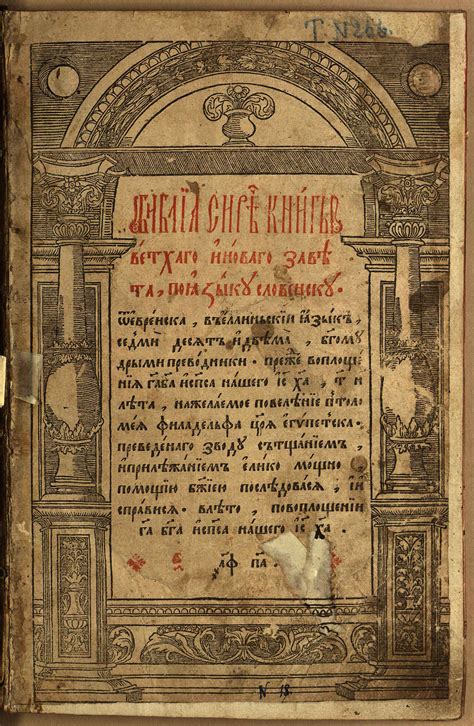 T. N 266.
Библїа сирѣч книгы
ветхаго и новаго завѣ
та, по ꙗзыку словенску.
ѿ еврейска, въ еллиньскїи ꙗзыкъ,
седмиѡ десѧтъ и двѣма, бг҃ому
дрыми преводники. преже воплоще
нїа гд҃а бг҃а и сп҃са нашего іс҃ х҃а, т҃
лѣта, на желаемое повелѣнїе птоло
меа филаделфа цр҃ѧ египетска.
преведенаго зводу с тщанїемъ,
и прилѣжанїемъ елико мощно
помощїю бж҃їею послѣдовасѧ, и и
справисѧ. в лѣто, по воплощенїи
гд҃а бг҃а и сп҃са нашего іс҃ х҃а.
҂аф҃ п҃а.
N 18.